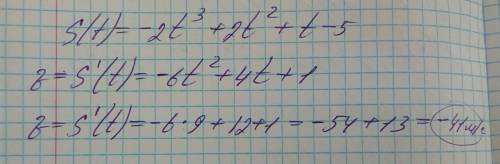 S(t)=-2t³+2t²+t-5
v=S'(t)=-6t²+4t+1
v=S'(t)=-6·9+12+1=-54+13=-41м/с